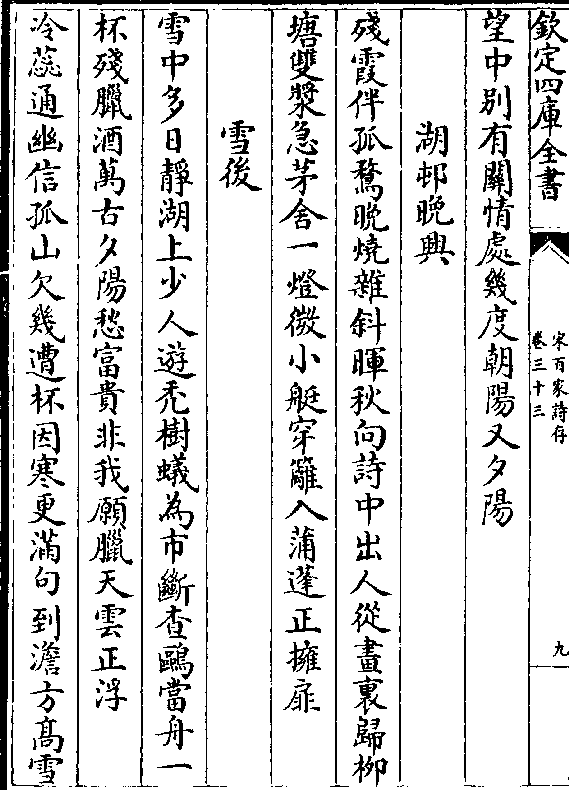 欽定四庫全書
宋百家詩存
卷三十三
九
望中别有關情處幾度朝陽又夕陽
湖邨晚興
殘霞伴孤鶩晩燒雜斜暉秋向詩中出人從畫裏歸栁
塘雙槳急茅舍一燈微小艇穿籬入蒲蓬正擁扉
雪後
雪中多日靜湖上少人遊禿樹蟻為市斷查鷗當舟一
杯殘臘酒萬古夕陽愁富貴非我願臘天雲正浮
冷蕊通幽信孤山欠幾遭杯因寒更滿句到澹方髙雪